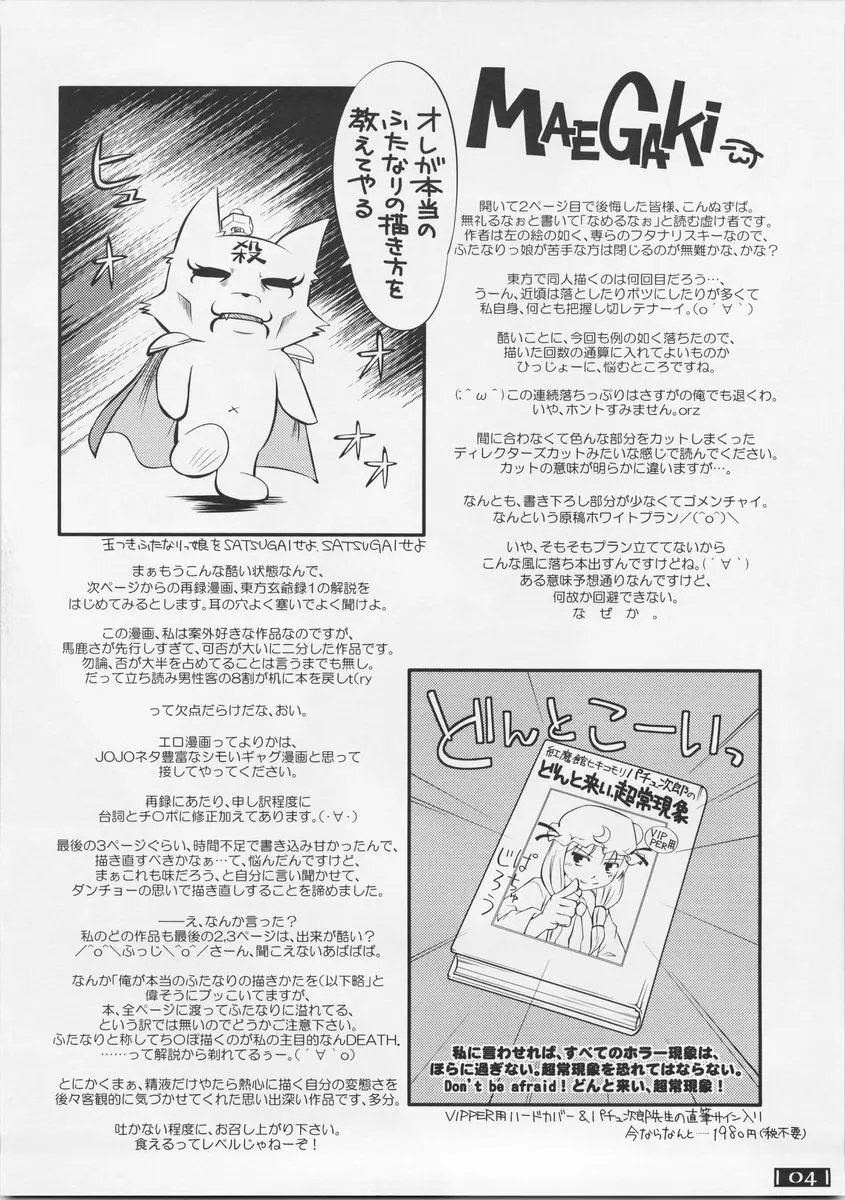 MAEGAKi
開いて2ページ目で後悔した皆様、こんぬずば。
無礼るなぉと書いて「なめるなぉ」と読む虚け者です。
作者は左の絵の如く、専らのフタナリスキーなので、
ふたなりっ娘が苦手な方は閉じるのが無難かな、かな?
東方で同人描くのは何回目だろう…、
うーん、近頃は落としたりボツにしたりが多くて
私自身、何とも把握し切レテナーイ。(o´∀`)
酷いことに、今回も例の如く落ちたので、
描いた回数の通算に入れてよいものか
ひっじょーに、悩むところですね。
(;^ω^)この連続落ちっぷりはさすがの俺でも退くわ。
いや、ホントすみません。orz
間に合わなくて色んな部分をカットしまくった
ディレクターズカットみたいな感じで読んでください。
カットの意味が明らかに違いますが…。
なんとも、書き下ろし部分が少なくてゴメンチャイ。
なんという原稿ホワイトプラン/(^o^)\
いや、そもそもプラン立ててないから
こんな風に落ち本出すんですけどね。(´∀`)
ある意味予想通りなんですけど、
何故か回避できない。
な ぜ か 。
オレが本当の
ふたなりの描き方を
教えてやる
ヒュ
殺
玉つきふたなりっ娘をSATSUGAIせよ.SATSUGAIせよ
まぁもうこんな酷い状態なんで、
次ページからの再録漫画、東方玄爺録1の解説を
はじめてみるとします。耳の穴よく塞いでよく聞けよ。
この漫画、私は案外好きな作品なのですが、
馬鹿さが先行しすぎて、可否が大いに二分した作品です。
勿論、否が大半を占めてることは言うまでも無し。
だって立ち読み男性客の8割が机に本を戻しt(ry
って欠点だらけだな、おい。
エロ漫画ってよりかは、
JOJOネタ豊富なシモいギャグ漫画と思って
接してやってください。
再録にあたり、申し訳程度に
台詞とチ○ポに修正加えてあります。(・∀・)
最後の3ページぐらい、時間不足で書き込み甘かったんで、
描き直すべきかなぁ…て、悩んだんですけど、
まぁこれも味だろう、と自分に言い聞かせて、
ダンチョーの思いで描き直しすることを諦めました。
――え、なんか言った?
私のどの作品も最後の2,3ページは、出来が酷い?
/^o^\ふっじ\^o^/さーん、聞こえないあばばば。
なんか「俺が本当のふたなりの描きかたを(以下略)」と
偉そうにブッこいてますが、
本、全ページに渡ってふたなりに溢れてる、
という訳では無いのでどうかご注意下さい。
ふたなりと称してち○ぽ描くのが私の主目的なんDEATH.
……って解説から剥れてるぅー。(´∀`o)
とにかくまぁ、精液だけやたら熱心に描く自分の変態さを
後々客観的に気づかせてくれた思い出深い作品です、多分。
吐かない程度に、お召し上がり下さい。
食えるってレベルじゃねーぞ!
どんとこーいっ
紅魔館ヒキコモリパチュ次郎の
どんと来い、超常現象
VIPPER用
ぱちゅ
じろう
私に言わせれば、すべてのホラー現象は、
ほらに過ぎない。超常現象を恐れてはならない。
Don't be afraid! どんと来い、超常現象!
VIPPER用ハードカバー&パチュ次郎先生の直筆サイン入り
今ならなんと……1980円(税不要)
04